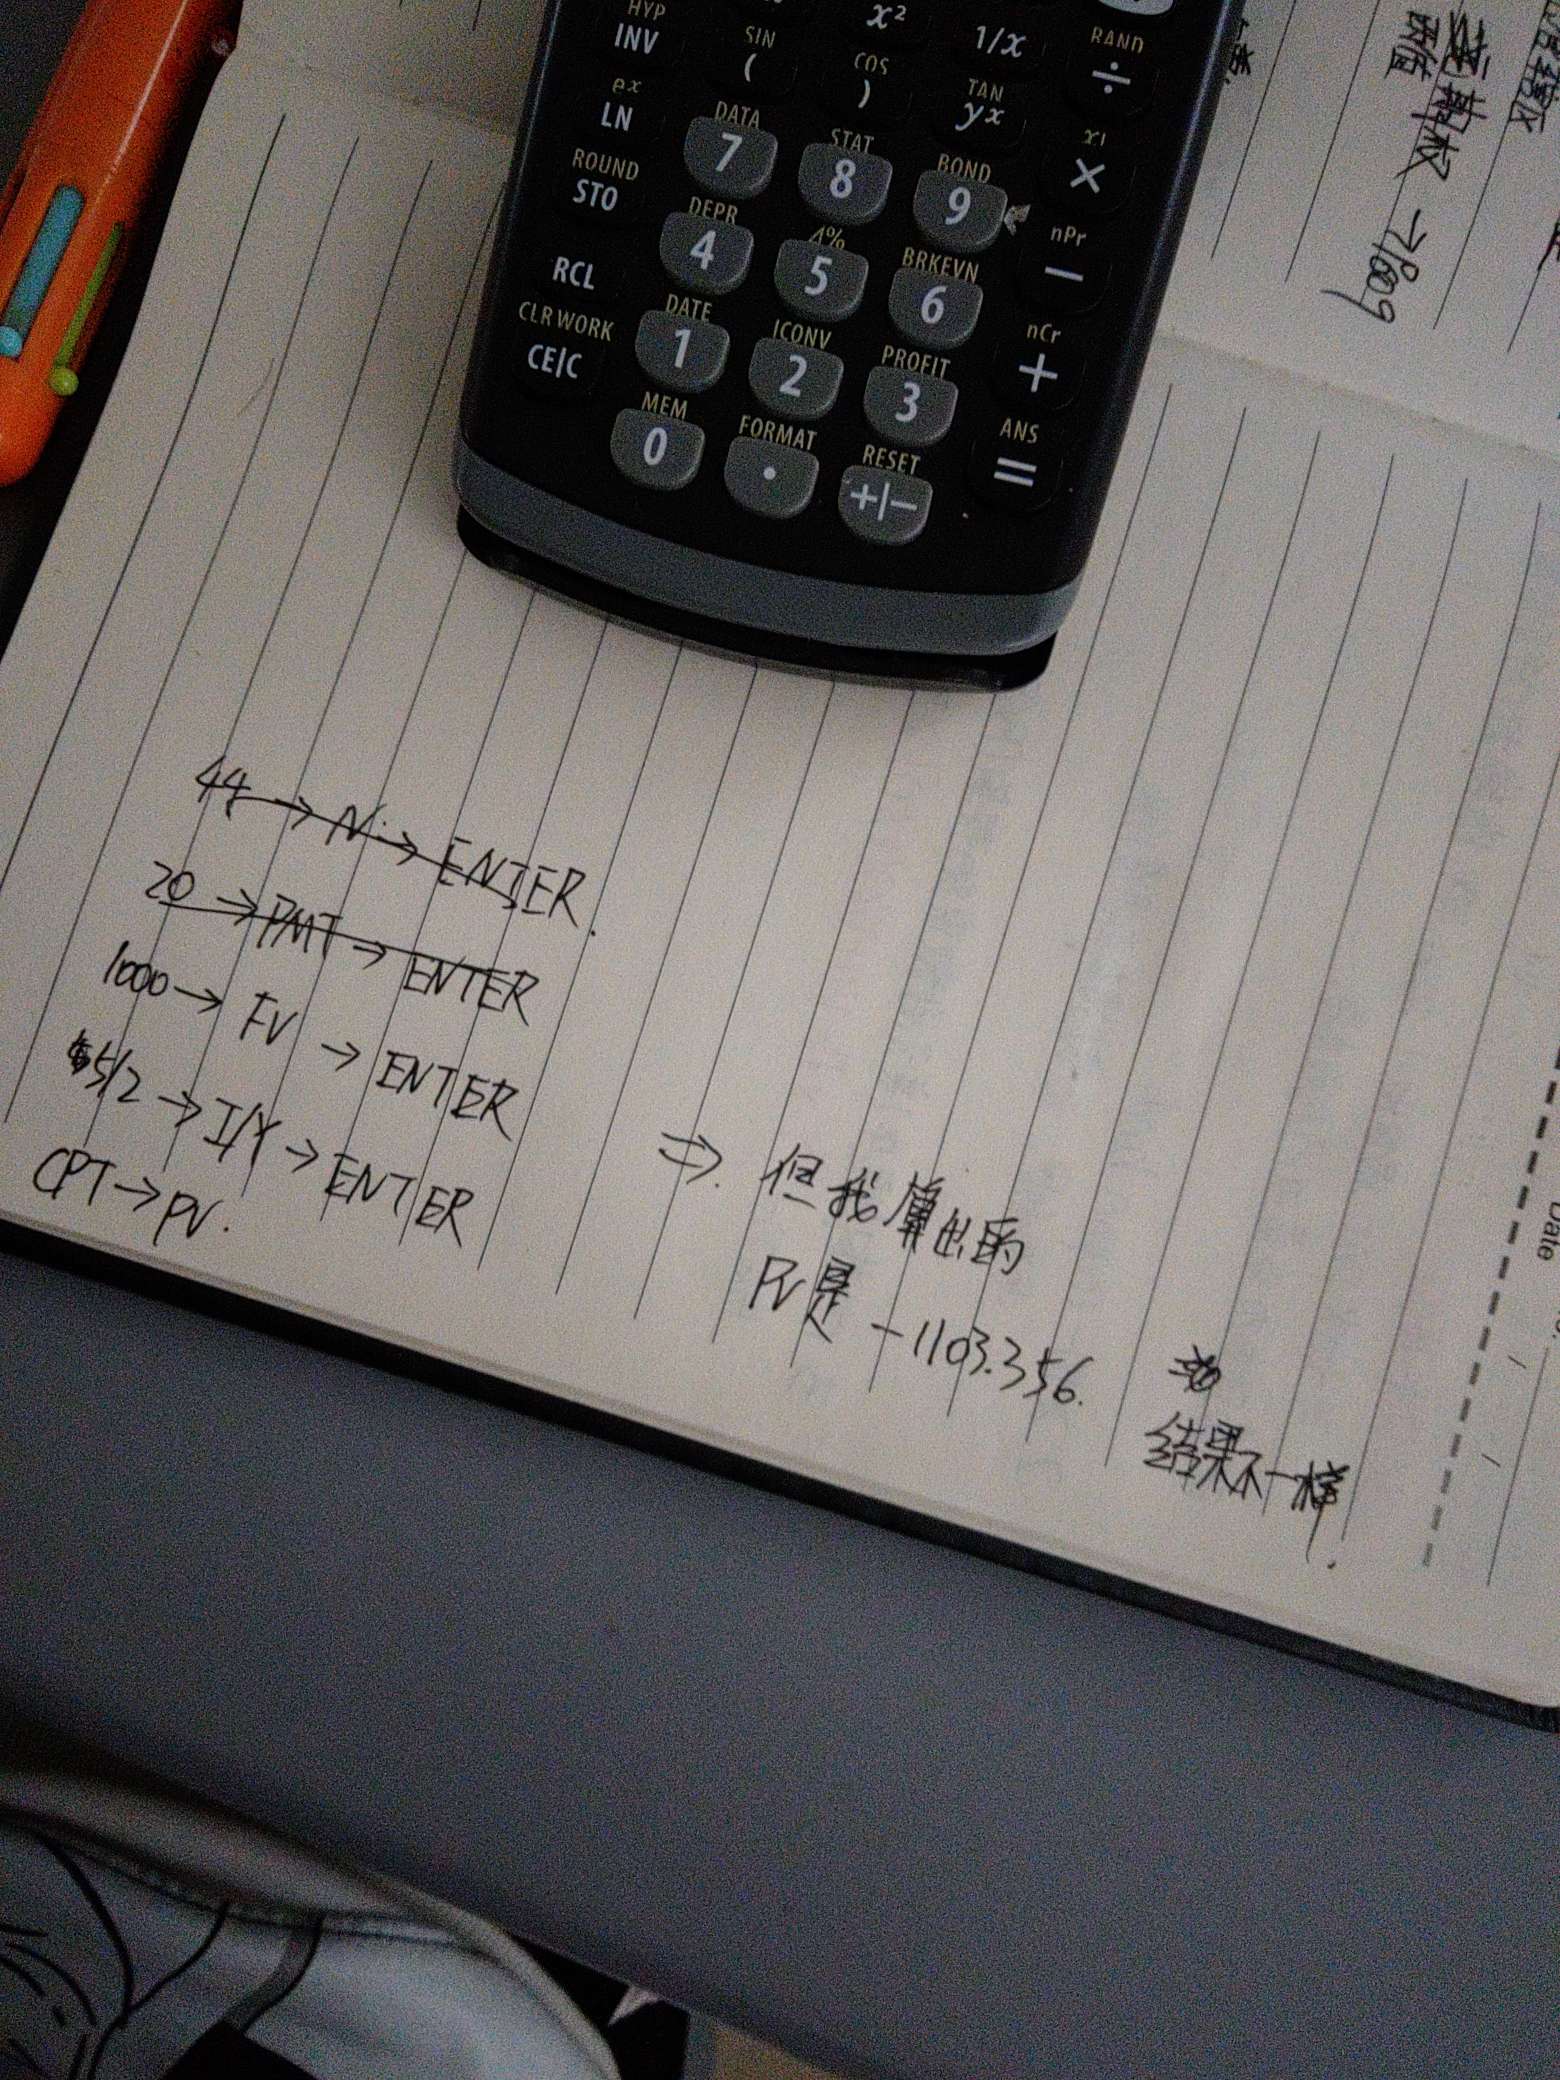 HYP
INV
SIN
(
x²
COS
)
1/x
TAN
yx
RAND
÷
ex
LN
DATA
7
STAT
8
BOND
9
x!
×
ROUND
STO
DEPR
4
Δ%
5
BRKEVN
6
nPr
−
RCL
DATE
1
ICONV
2
PROFIT
3
nCr
+
CLR WORK
CE|C
MEM
0
FORMAT
.
RESET
+|−
ANS
=
44 → N → ENTER.
20 → PMT → ENTER
1000 → FV → ENTER
5/2 → I/Y → ENTER
CPT → PV.
⇒. 但我算出的
PV是 -1103.356.
结果不一样.
Date